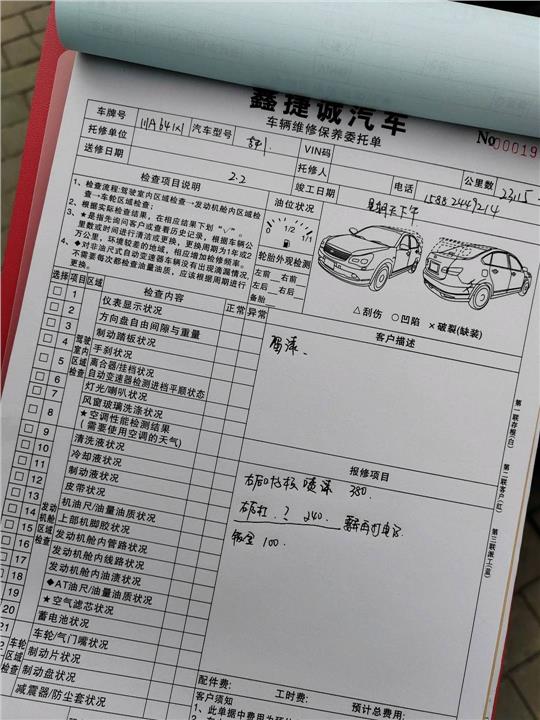 鑫捷诚汽车
车辆维修保养委托单
No 00019
车牌号 川A641X1 汽车型号 VIN码 公里数 2315
托修单位 托修人 电话 15882449214
送修日期 2.2 竣工日期 星期天下午
检查项目说明
1、检查流程:驾驶室内区域检查→发动机舱内区域检
查→车轮区域检查;
2、根据实际检查结果,在相应结果下划“√”。
3、★是指先询问客户或查看历史记录,根据车辆公
里数或时间进行清洁或更换,更换周期为1年或2
万公里,环境较差的地域,相应增加检修频率。
4、◆对非油尺式自动变速器车辆没有出现滴漏情况,
不需要每次都检查油量油质,应该根据周期进行
更换。
油位状况
0 1/2 1/1
轮胎外观检测
左前 右前
左后 右后
备胎
△刮伤 ○凹陷 ×破裂(缺装)
选择 项目 区域 检查内容 正常 异常
客户描述
驾驶室内区域检查
1 仪表显示状况
2 方向盘自由间隙与重量
3 制动踏板状况
4 手刹状况
5 离合器/挂档状况
自动变速器检测进档平顺状态
6 灯光/喇叭状况
7 风窗玻璃洗涤状况
8 ★空调性能检测结果
(需要使用空调的天气)
发动机舱区域检查
9 清洗液状况
10 冷却液状况
11 制动液状况
12 皮带状况
13 机油尺/油量油质状况
14 上部机脚胶状况
15 发动机舱内管路状况
16 发动机舱内线路状况
17 发动机舱内油渍状况
18 ◆AT油尺/油量油质状况
19 ★空气滤芯状况
20 蓄电池状况
车轮区域检查
21 车轮/气门嘴状况
制动片状况
制动盘状况
减震器/防尘套状况
报修项目
喷漆 380.
右后杠 ? 240. 再打电话
钣金 100.
配件费: 工时费: 预计总费用:
客户须知
第一联存根(白)
第二联客户(红)
第三联派工(蓝)